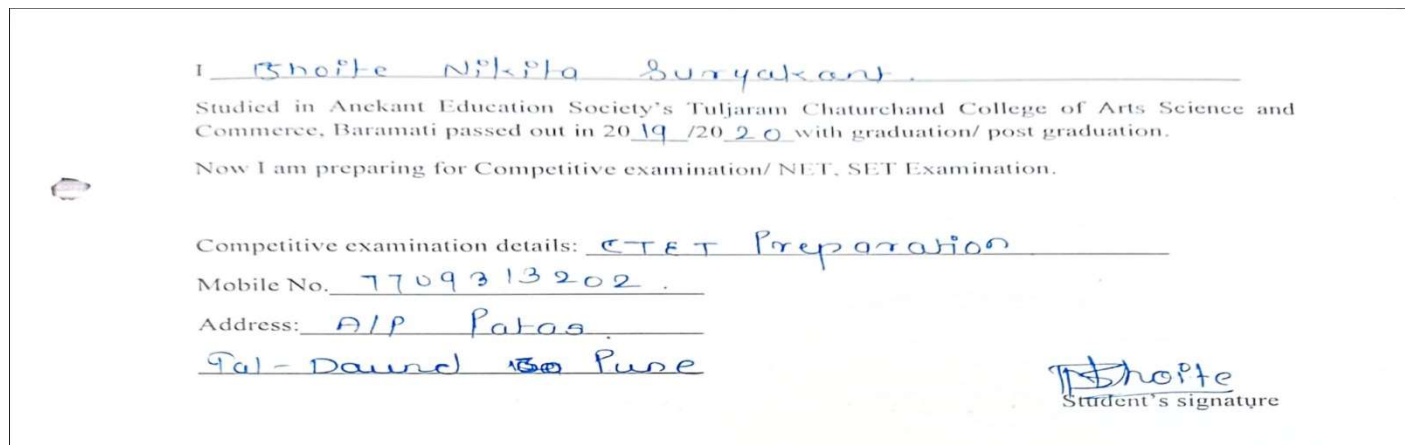 I Bhoite Nikita Suryakant.
Studied in Anekant Education Society's Tuljaram Chaturchand College of Arts Science and
Commerce, Baramati passed out in 2019/2020 with graduation/ post graduation.
Now I am preparing for Competitive examination/ NET, SET Examination.
Competitive examination details: CTET Preparation
Mobile No. 7709313202.
Address: A/P Patas.
Tal-Daund Pune
NBhoite
Student's signature